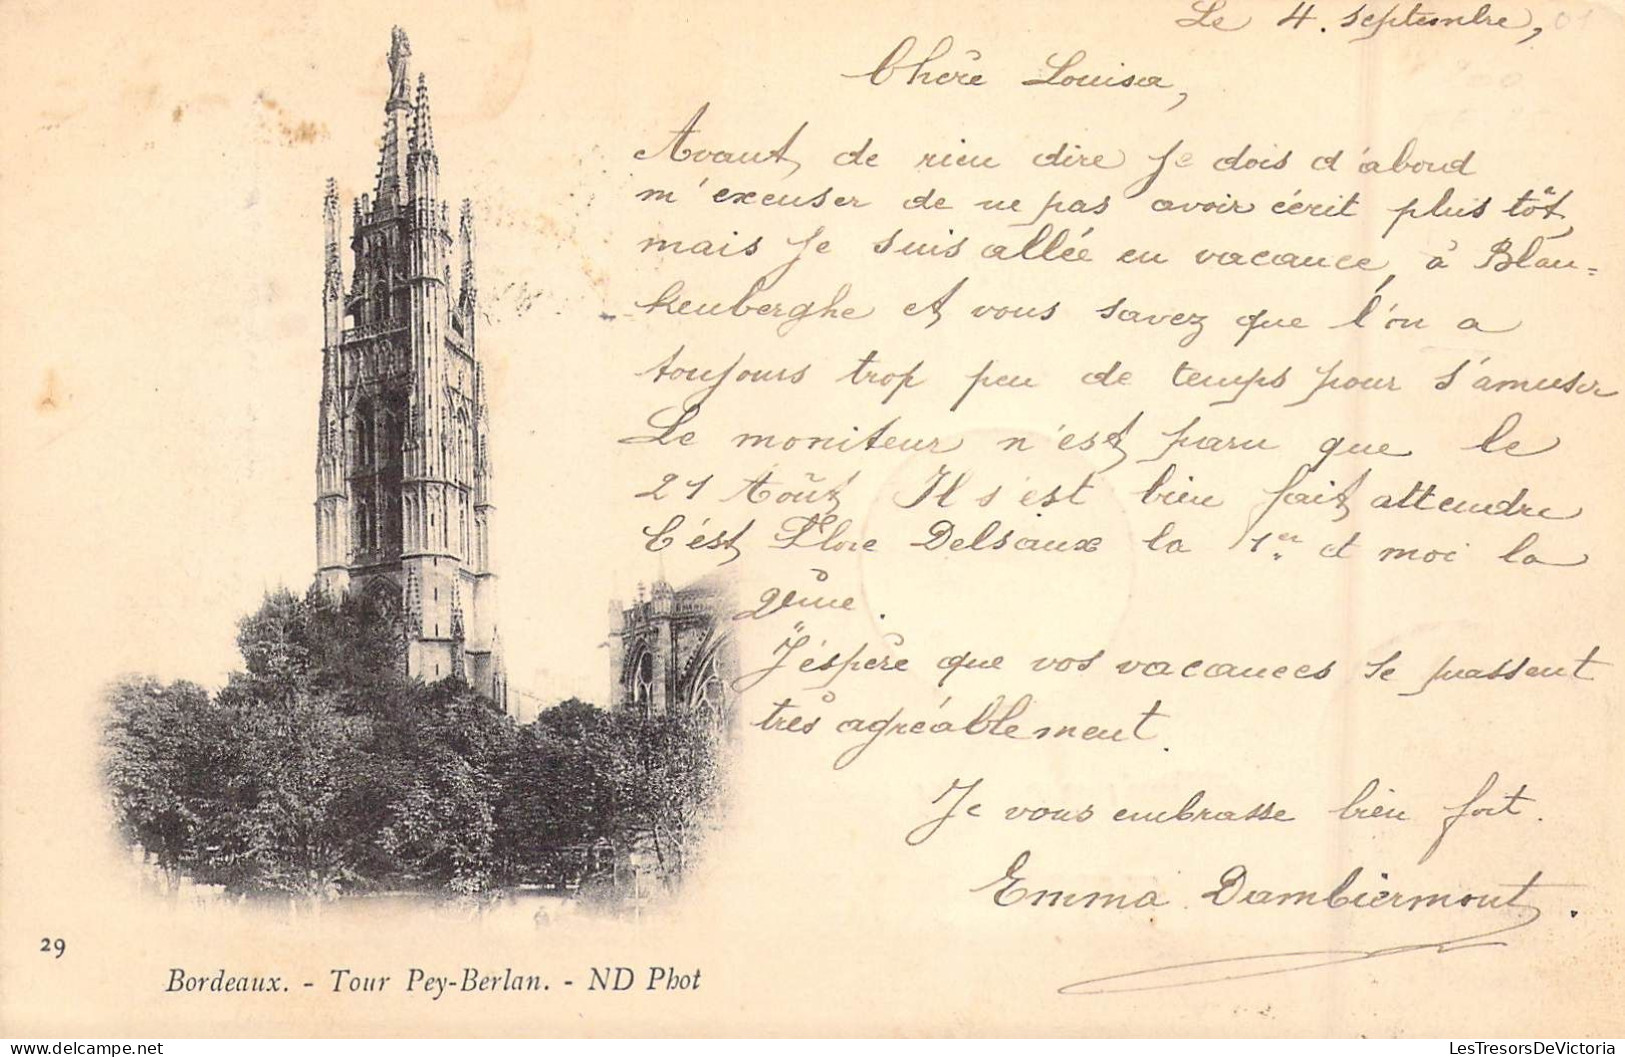 Le 4. septembre, 01
Chère Louisa,
Avant, de rien dire je dois d'abord
m'excuser de ne pas avoir écrit plus tôt,
mais je suis allée en vacance, à Blan=
kenberghe et vous savez que l'on a
toujours trop peu de temps pour s'amuser
Le moniteur n'est paru que le
21 Août Il s'est bien fait attendre
C'est Flore Delsaux la 1er et moi la
2ème.
J'éspère que vos vacances se passent
très agréablement.
Je vous embrasse bien fort.
Emma Dambiermont.
29
Bordeaux. - Tour Pey-Berlan. - ND Phot
LesTresorsDeVictoria